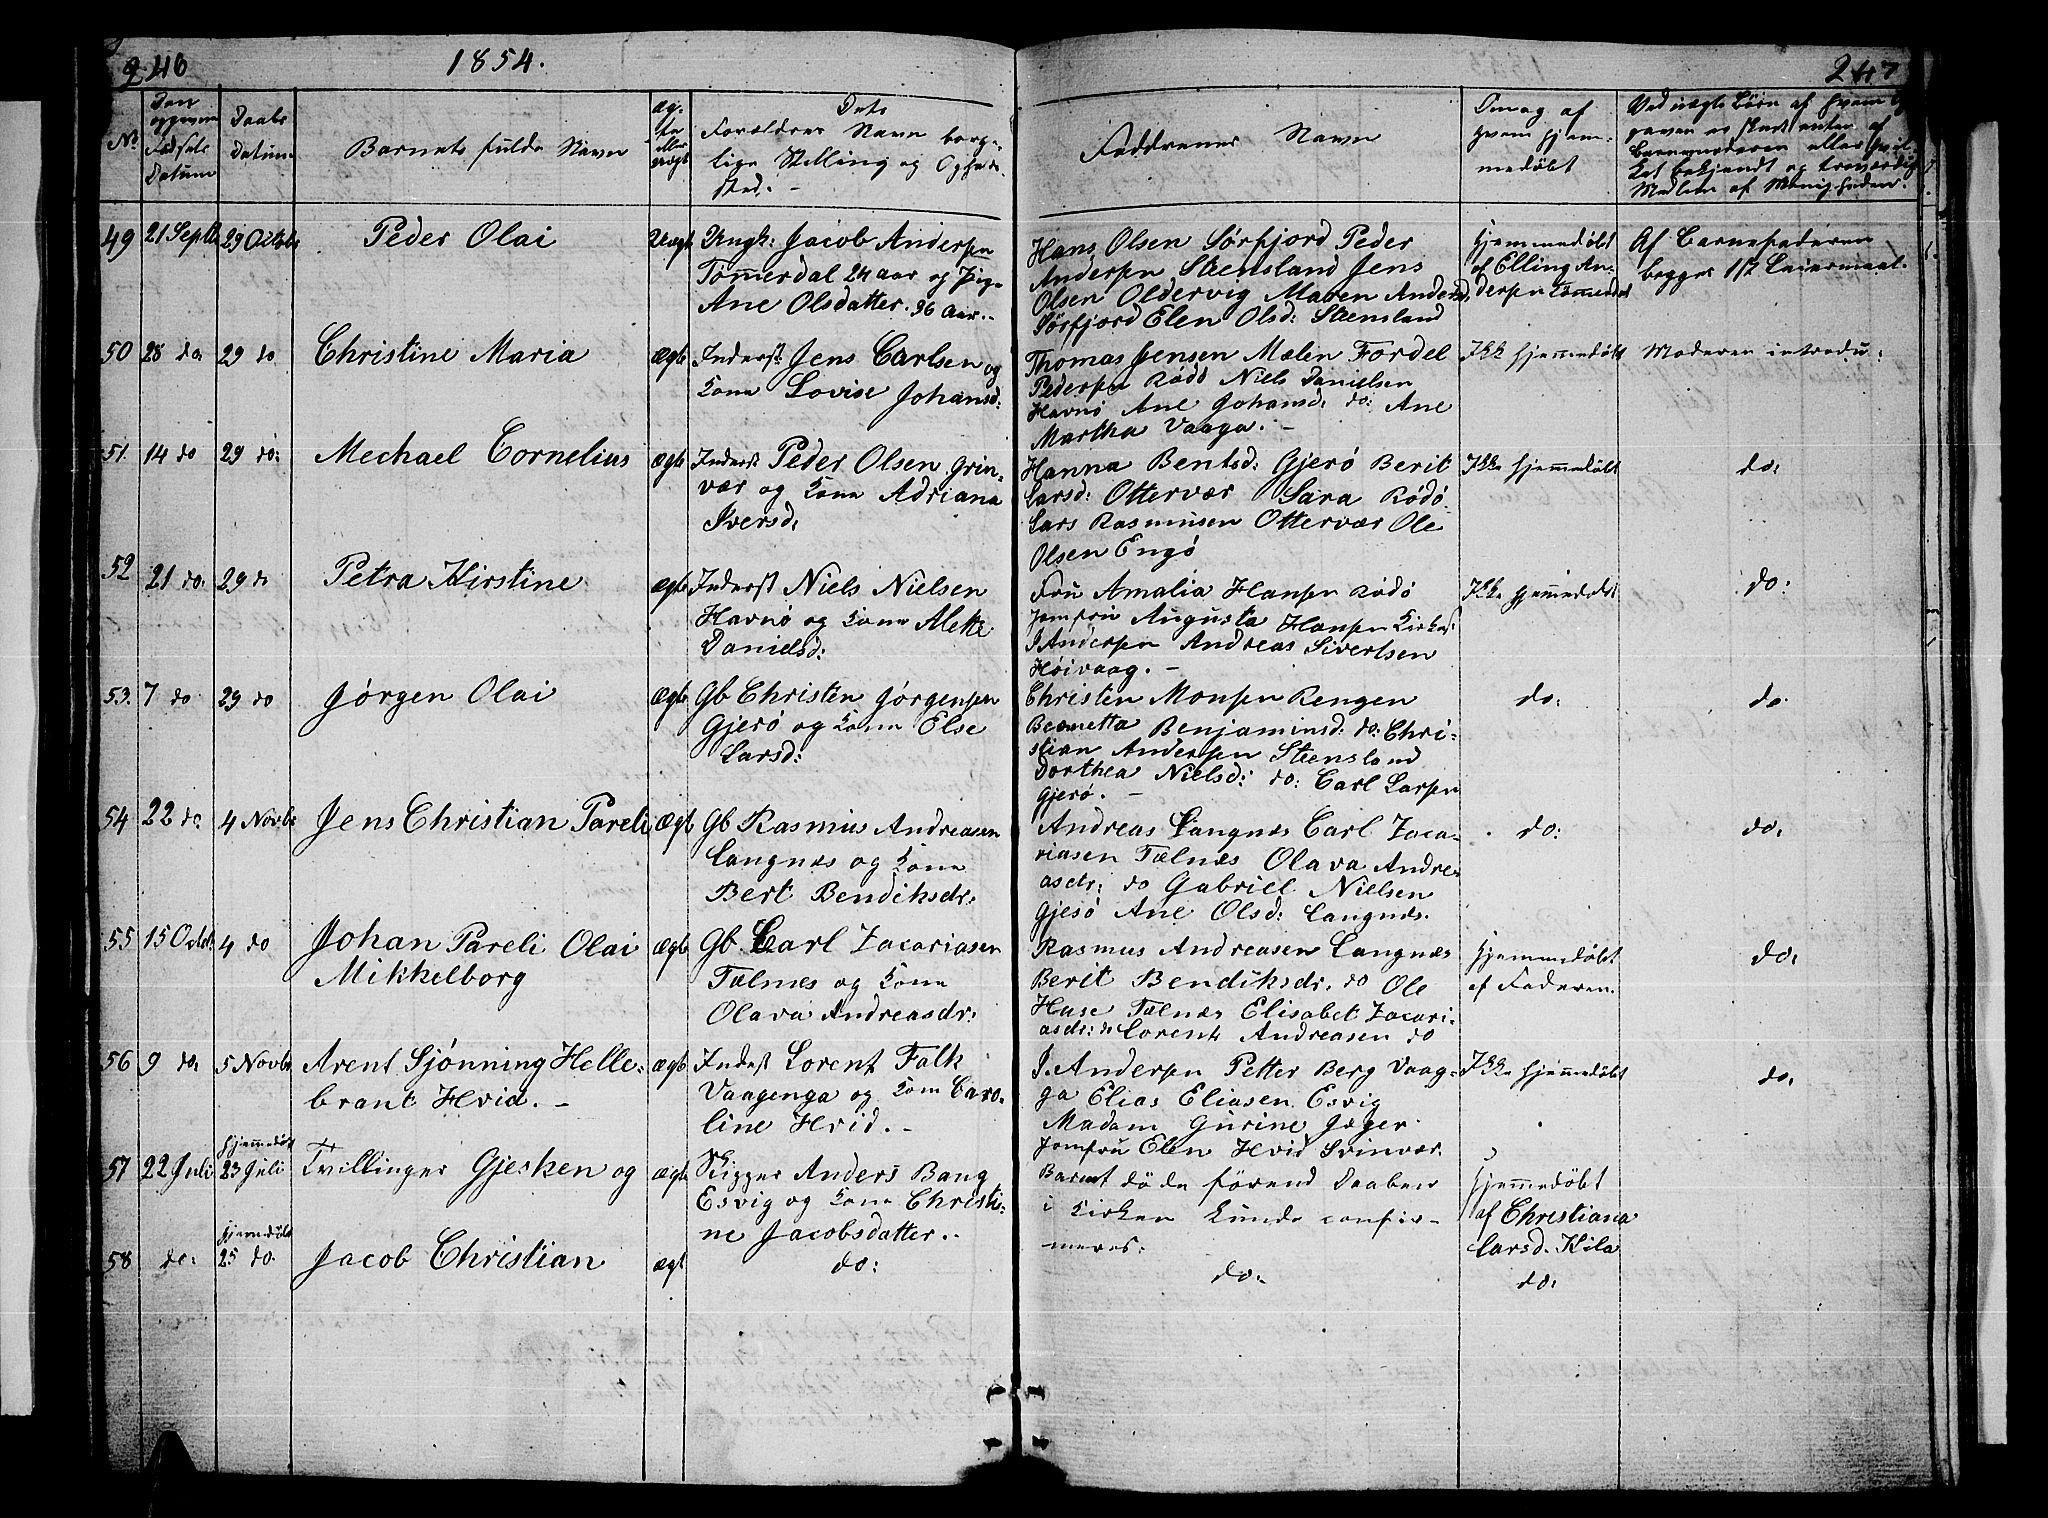 246
1854.
247
No
Den opgivne Fødsels Datum
Daabs Datum
Barnets fulde Navn
Ægte eller Uægt
Dets Forældres Navn borgelige Stilling og Opholdssted. -
Faddrenes Navn
Om og af hvem hjemmedöbt
Ved uægte Börn af hvem
Barnemoderen eller
Ket bekjendt og troværdig
Medlem af Menigheden.
49 21 Septb 29 Octobr Peder Olai Uægt Ungk: Jacob Andersen
Tömmerdal 24 aar og Pige
Ane Olsdatter. 36 aar. -
Hans Olsen Sörfjord Peder
Andersen Steensland Jens
Olsen Oldervig Maren Andersd.
Sörfjord Elen Olsd: Steensland
Hjemmedöbt
af Elling An-
dersen Tömmerdal
Af Barnefaderen
begges 1ste Leiermaal.
50 28 do. 29 do Christine Maria ægte Inderst Jens Carlsen og
Kone Lovise Johansd:
Thomas Jensen Mælen Fordel
Pedersen Rödö Niels Danielsen
Havnö Ane Johansd: do: Ane
Martha Vaaga. -
Ikke hjemedöbt
Moderen introdu:
51. 14 do 29 do: Mechael Cornelius ægte Inderst Peder Olsen Grin-
vær og Kone Adriana
Iversd:
Hanna Bentsd: Gjerö Berit
Larsd: Ottervær Sara Rödö.
Lars Rasmusen Ottervær Ole
Olsen Engö
Ikke hjemedöbt
do:
52 21 do. 29 do Petra Kirstine ægte Inderst Niels Nielsen
Havnö og Kone Alette
Danielsd:
Fru Amalia Hansen Rödö
Jomfru Augusta Hansen
I Andersen Andreas Sivertsen
Höivaag. -
Ikke hjemedöbt
do:
53. 7 do 29 do Jörgen Olai ægte Gb Christen Jörgensen
Gjerö og Kone Else
Larsd:
Christen Monsen Rengen
Benjaminsd: do: Chri-
stian Andersen Steensland
Dorthea Nielsd: do: Carl Larsen
Gjerö. -
do:
do.
54 22 do 4 Novbr Jens Christian Pareli ægt Gb Rasmus Andreasen
Langnæs og Kone
Bert Bendiksdr:
Andreas Langnæs Carl Zaca-
riasen Tælnæs Olava Andre-
asdr: do Gabriel Nielsen
Gjesö Ane Olsd: Langnæs.
do:
do:
55 15 Octob: 4 do Johan Pareli Olai
Mikkelborg
ægte Gb Carl Zacariasen
Tælnæs og Kone
Olava Andreasdr:
Rasmus Andreasen Langnæs
Berit Bendiksdr. do Ole
Huse Tælnæs Elisabet Zacari-
asdr: do Lorents Andreasen do
Hjemmedöbt
af Faderen.
do:
56 9 do. 5 Novbr Arent Sjönning Helle-
brant Hvid. -
ægte Inderst Lorent Falk
Vaagenga og Kone Caro-
line Hvid. -
I. Andersen Petter Berg Vaag-
ga Elias Eliasen Esvig
Madam Gurine Jæger.
Jomfru Elen Hvid Svinvær.
Ikke hjemmedöbt
do:
57 22 Juli hjemmedöbt 23 Juli Tvillinger Gjesken og ægte Anders Bang
Esvig og Kone Christi-
ne Jacobsdatter..
Barnet döde förend Daaben
i Kirken kunde confir-
meres.
Hjemedöbt
af Christiana
Larsd. Kila
58 do: hjemedöbt 25 do. Jacob Christian ægt do:
do.
do: